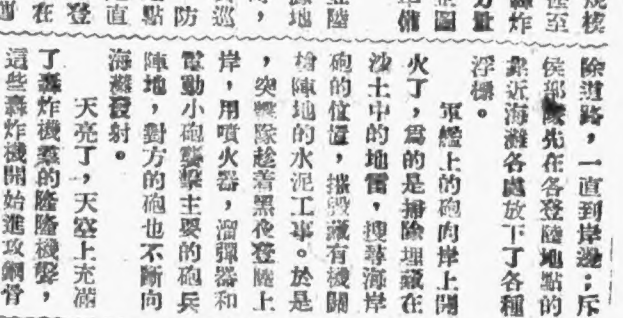 規模
至
轟炸
力量
圖
備
陸
地
巡
防
點
直
登
在
除道路，一直到岸邊；斥
侯部隊先在各登陸地點的
靠近海灘各處放下了各種
浮標。
軍艦上的砲向岸上開
火了，爲的是掃除埋藏在
沙土中的地雷，搜尋海岸
砲的位置，摧毀藏有機關
槍陣地的水泥工事。於是
，突擊隊趁着黑夜登陸上
岸，用噴火器，溜彈器和
電動小砲襲擊主要的砲兵
陣地，對方的砲也不斷向
海灘發射。
天亮了，天空上充滿
了轟炸機羣的隆隆機聲，
這些轟炸機開始進攻鋼骨